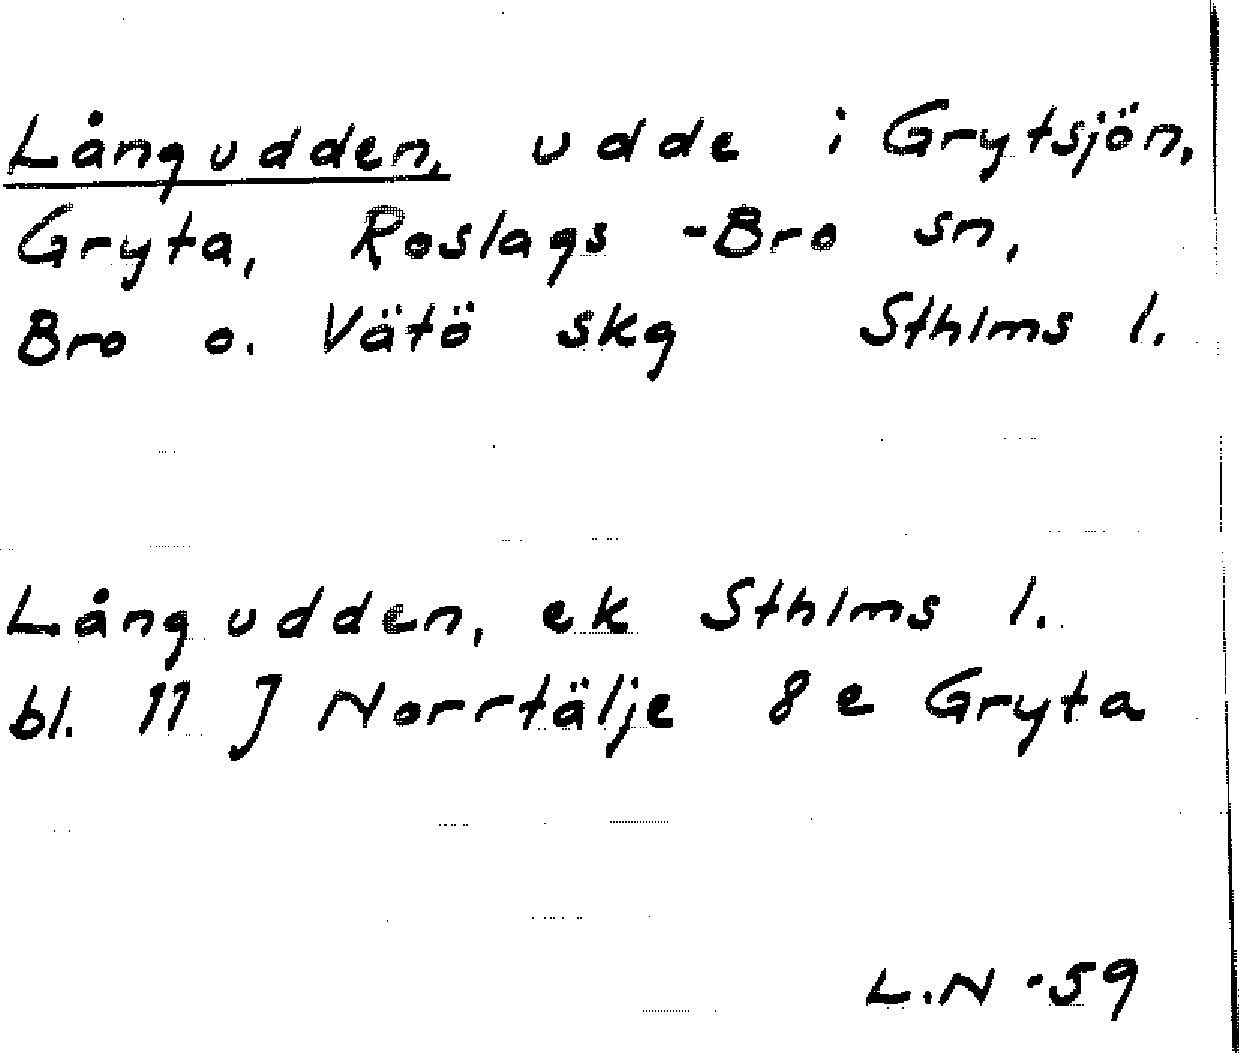 Långudden, udde i Grytsjön,
Gryta, Roslags-Bro sn,
Bro o. Vätö skg Sthlms l.
Långudden, ek Sthlms l.
bl. 11 J Norrtälje 8e Gryta
L.N -59